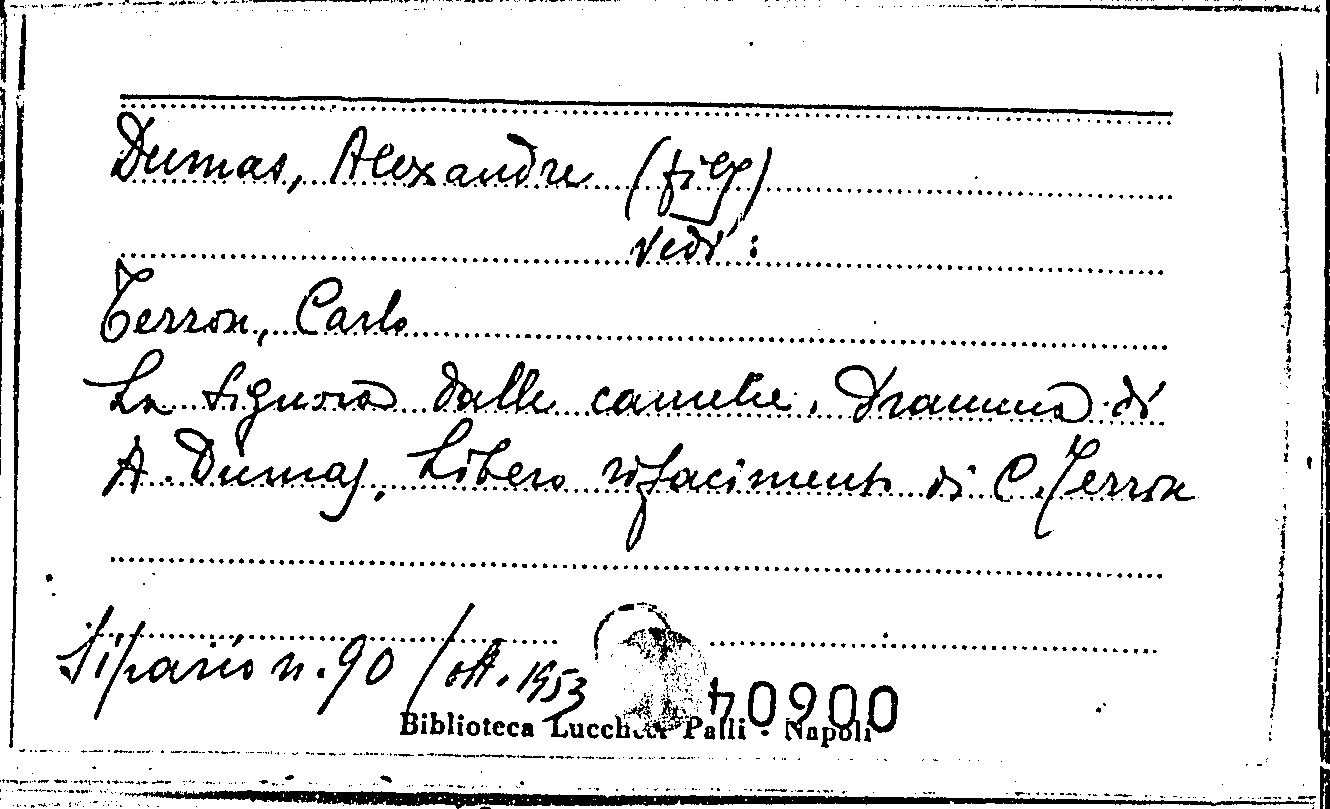 Dumas, Alexandre (figl)
vedi:
Terron, Carlo
La Signora dalle camelie. Dramma di
A. Dumas, Libero rifacimento di C. Terron
Sipario n. 90 / ott. 1953
Biblioteca Lucchesi Palli - Napoli